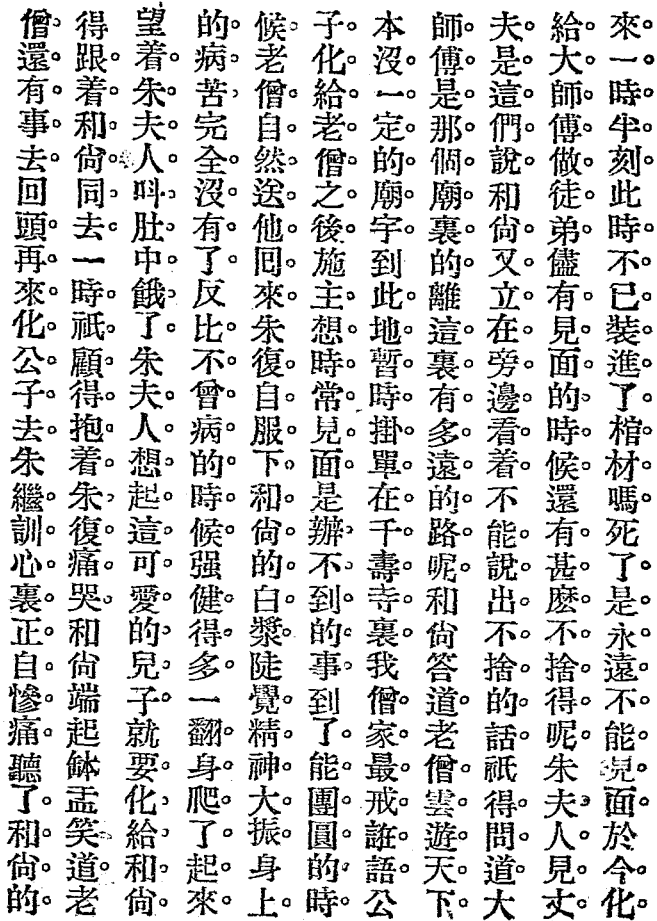 來一時半刻此時不已裝進了棺材嗎死了是永遠不能見面於今化
給大師傅做徒弟儘有見面的時候還有甚麽不捨得呢朱夫人見丈
夫是這們說和尙又立在旁邊看着不能說出不捨的話祇得問道大
師傅是那個廟裏的離這裏有多遠的路呢和尙答道老僧雲遊天下
本沒一定的廟宇到此地暫時掛單在千壽寺裏我僧家最戒誑語公
子化給老僧之後施主想時常見面是辦不到的事到了能團圓的時
候老僧自然送他囘來朱復自服下和尙的白漿陡覺精神大振身上
的病苦完全沒有了反比不曾病的時候强健得多一翻身爬了起來
望着朱夫人呌肚中餓了朱夫人想起這可愛的兒子就要化給和尙
得跟着和尙同去一時祇顧得抱着朱復痛哭和尙端起鉢盂笑道老
僧還有事去回頭再來化公子去朱繼訓心裏正自慘痛聽了和尙的